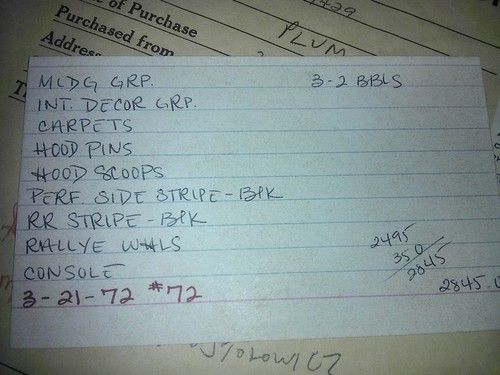 of Purchase
Purchased from
Address
PLUM
MLDG GRP. 3-2 BBLS
INT. DECOR GRP.
CARPETS
HOOD PINS
HOOD SCOOPS
PERF. SIDE STRIPE - BLK
RR STRIPE - BLK
RALLYE WHLS
CONSOLE
2495
350
2845
2845.0
3-21-72 #72